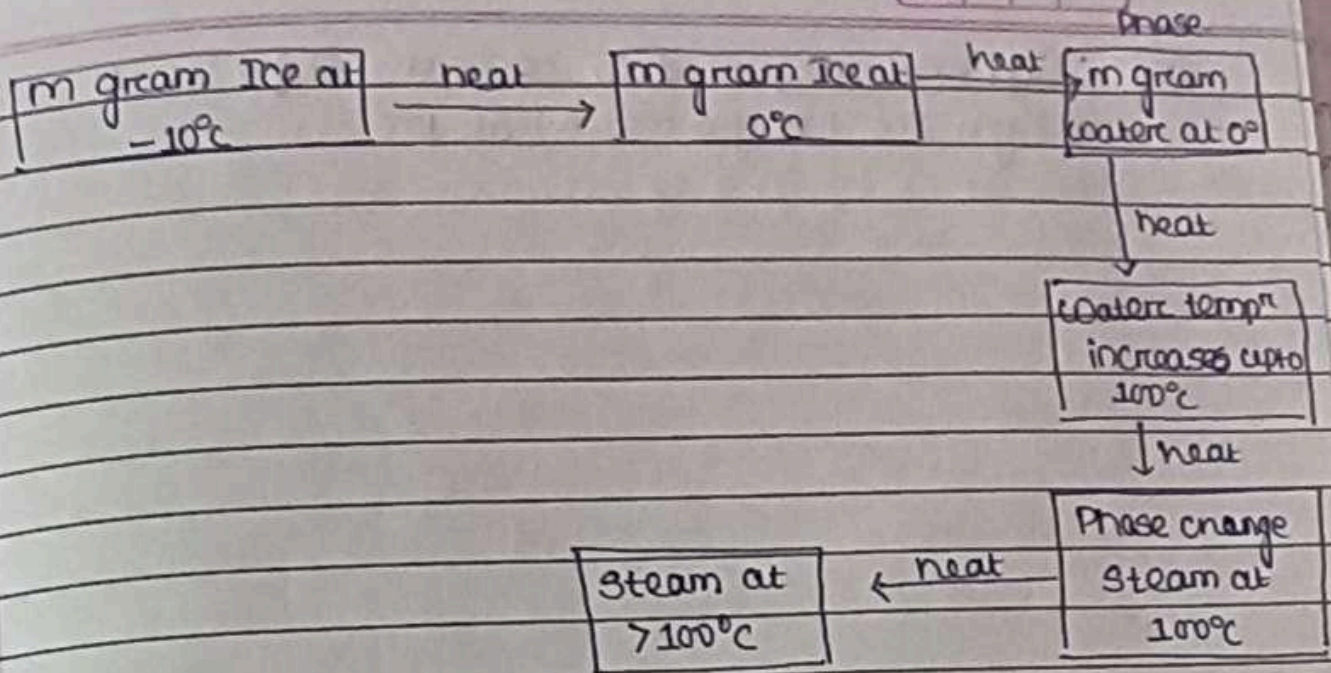 Phase
m gram Ice at
-10°C
heat
m gram Ice at
0°C
heat
m gram
water at 0°
heat
water tempr
increases upto
100°C
heat
Phase change
Steam at
100°C
heat
Steam at
>100°C